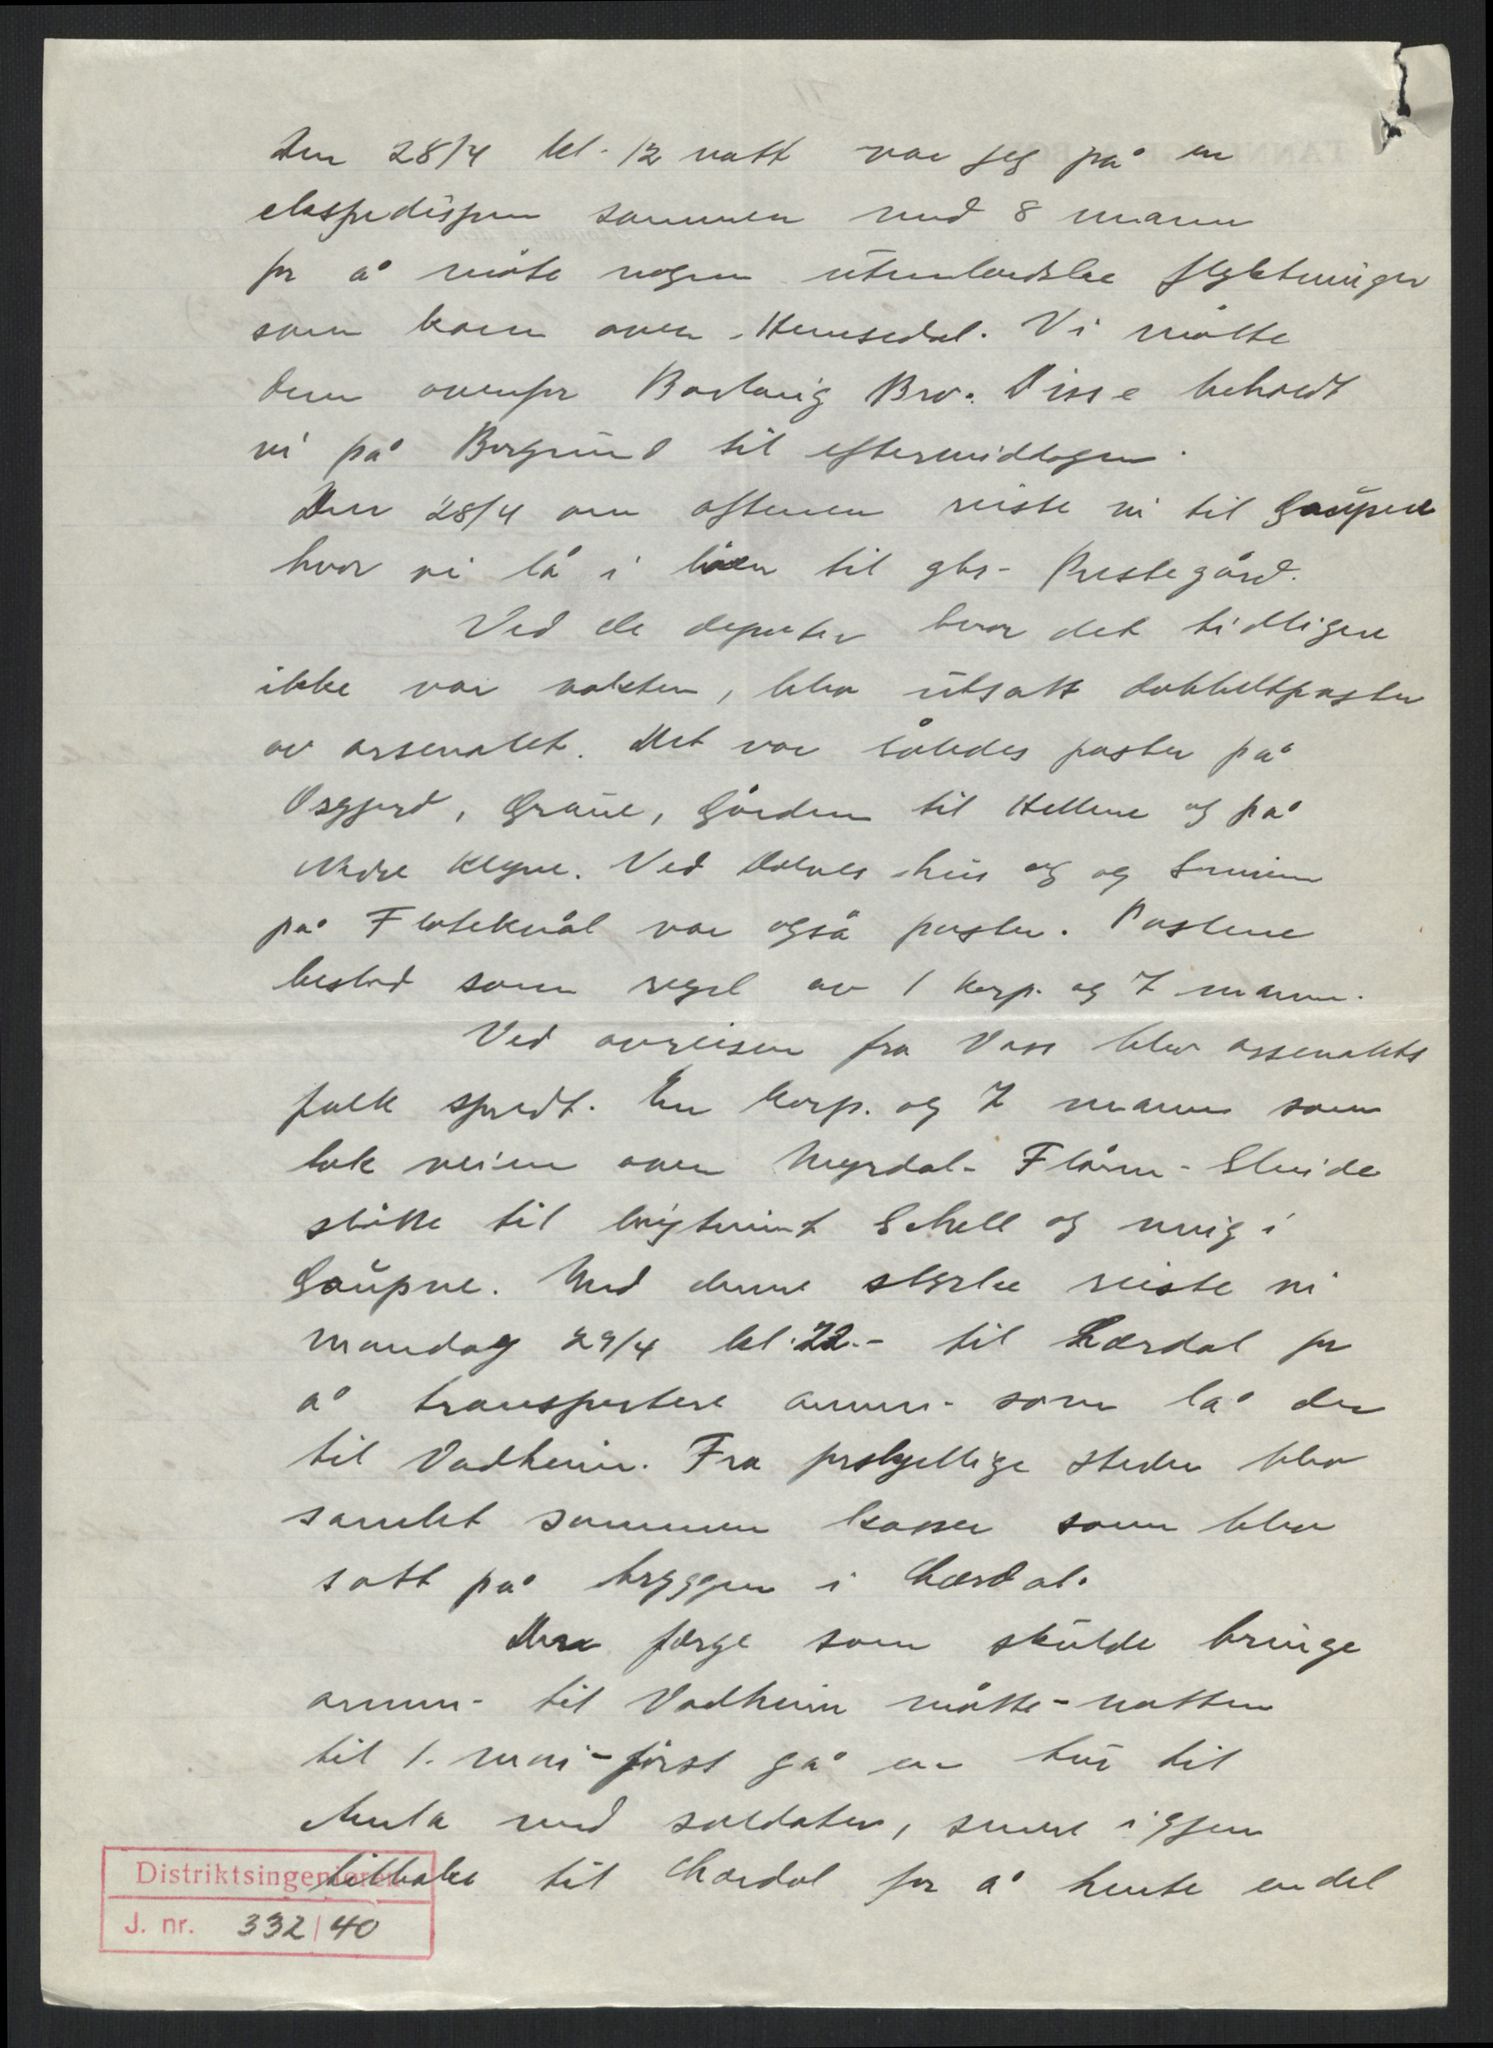 Den 28/4 kl. 12 natt var jeg på en
ekspedisjon sammen med 8 mann
for å møte nogen utenlandske flyktninger
som kom over Hemsedal. Vi møtte
dem ovenfor Borlaug Bro. Disse beholdt
vi på Borgund til eftermiddagen.
Den 28/4 om aftenen reiste vi til Gaupne
hvor vi lå i låven til gbr. Prestegård.
Ved de depoter hvor det tidligere
ikke var vakten, blev utsatt dobbeltposter
av arsenalet. Det var således poster på
Osgjerd, Graue, Gården til Hellene og på
Nedre Klyve. Ved hus og og
på Flatekvål var også poster. Postene
bestod som regel av 1 korp. og 7 mann.
Ved avreisen fra Voss blev arsenalets
folk spredt. En korp. og 7 mann som
tok veien over Myrdal - Flåm - Slinde
støtte til Schell og mig i
Gaupne. Med denne styrke reiste vi
mandag 29/4 kl. 22.- til Lærdal for
å transportere ammu. som lå der
til Vadheim. Fra forskjellige steder blev
samlet sammen kasser som blev
satt på bryggen i Lærdal.
Den ferge som skulde bringe
ammu. til Vadheim måtte - natten
til 1. mai - først gå en tur til
med soldater, senere igjen
tilbake til Lærdal for å hente endel
Distriktsingeniøren
J. nr. 332/40